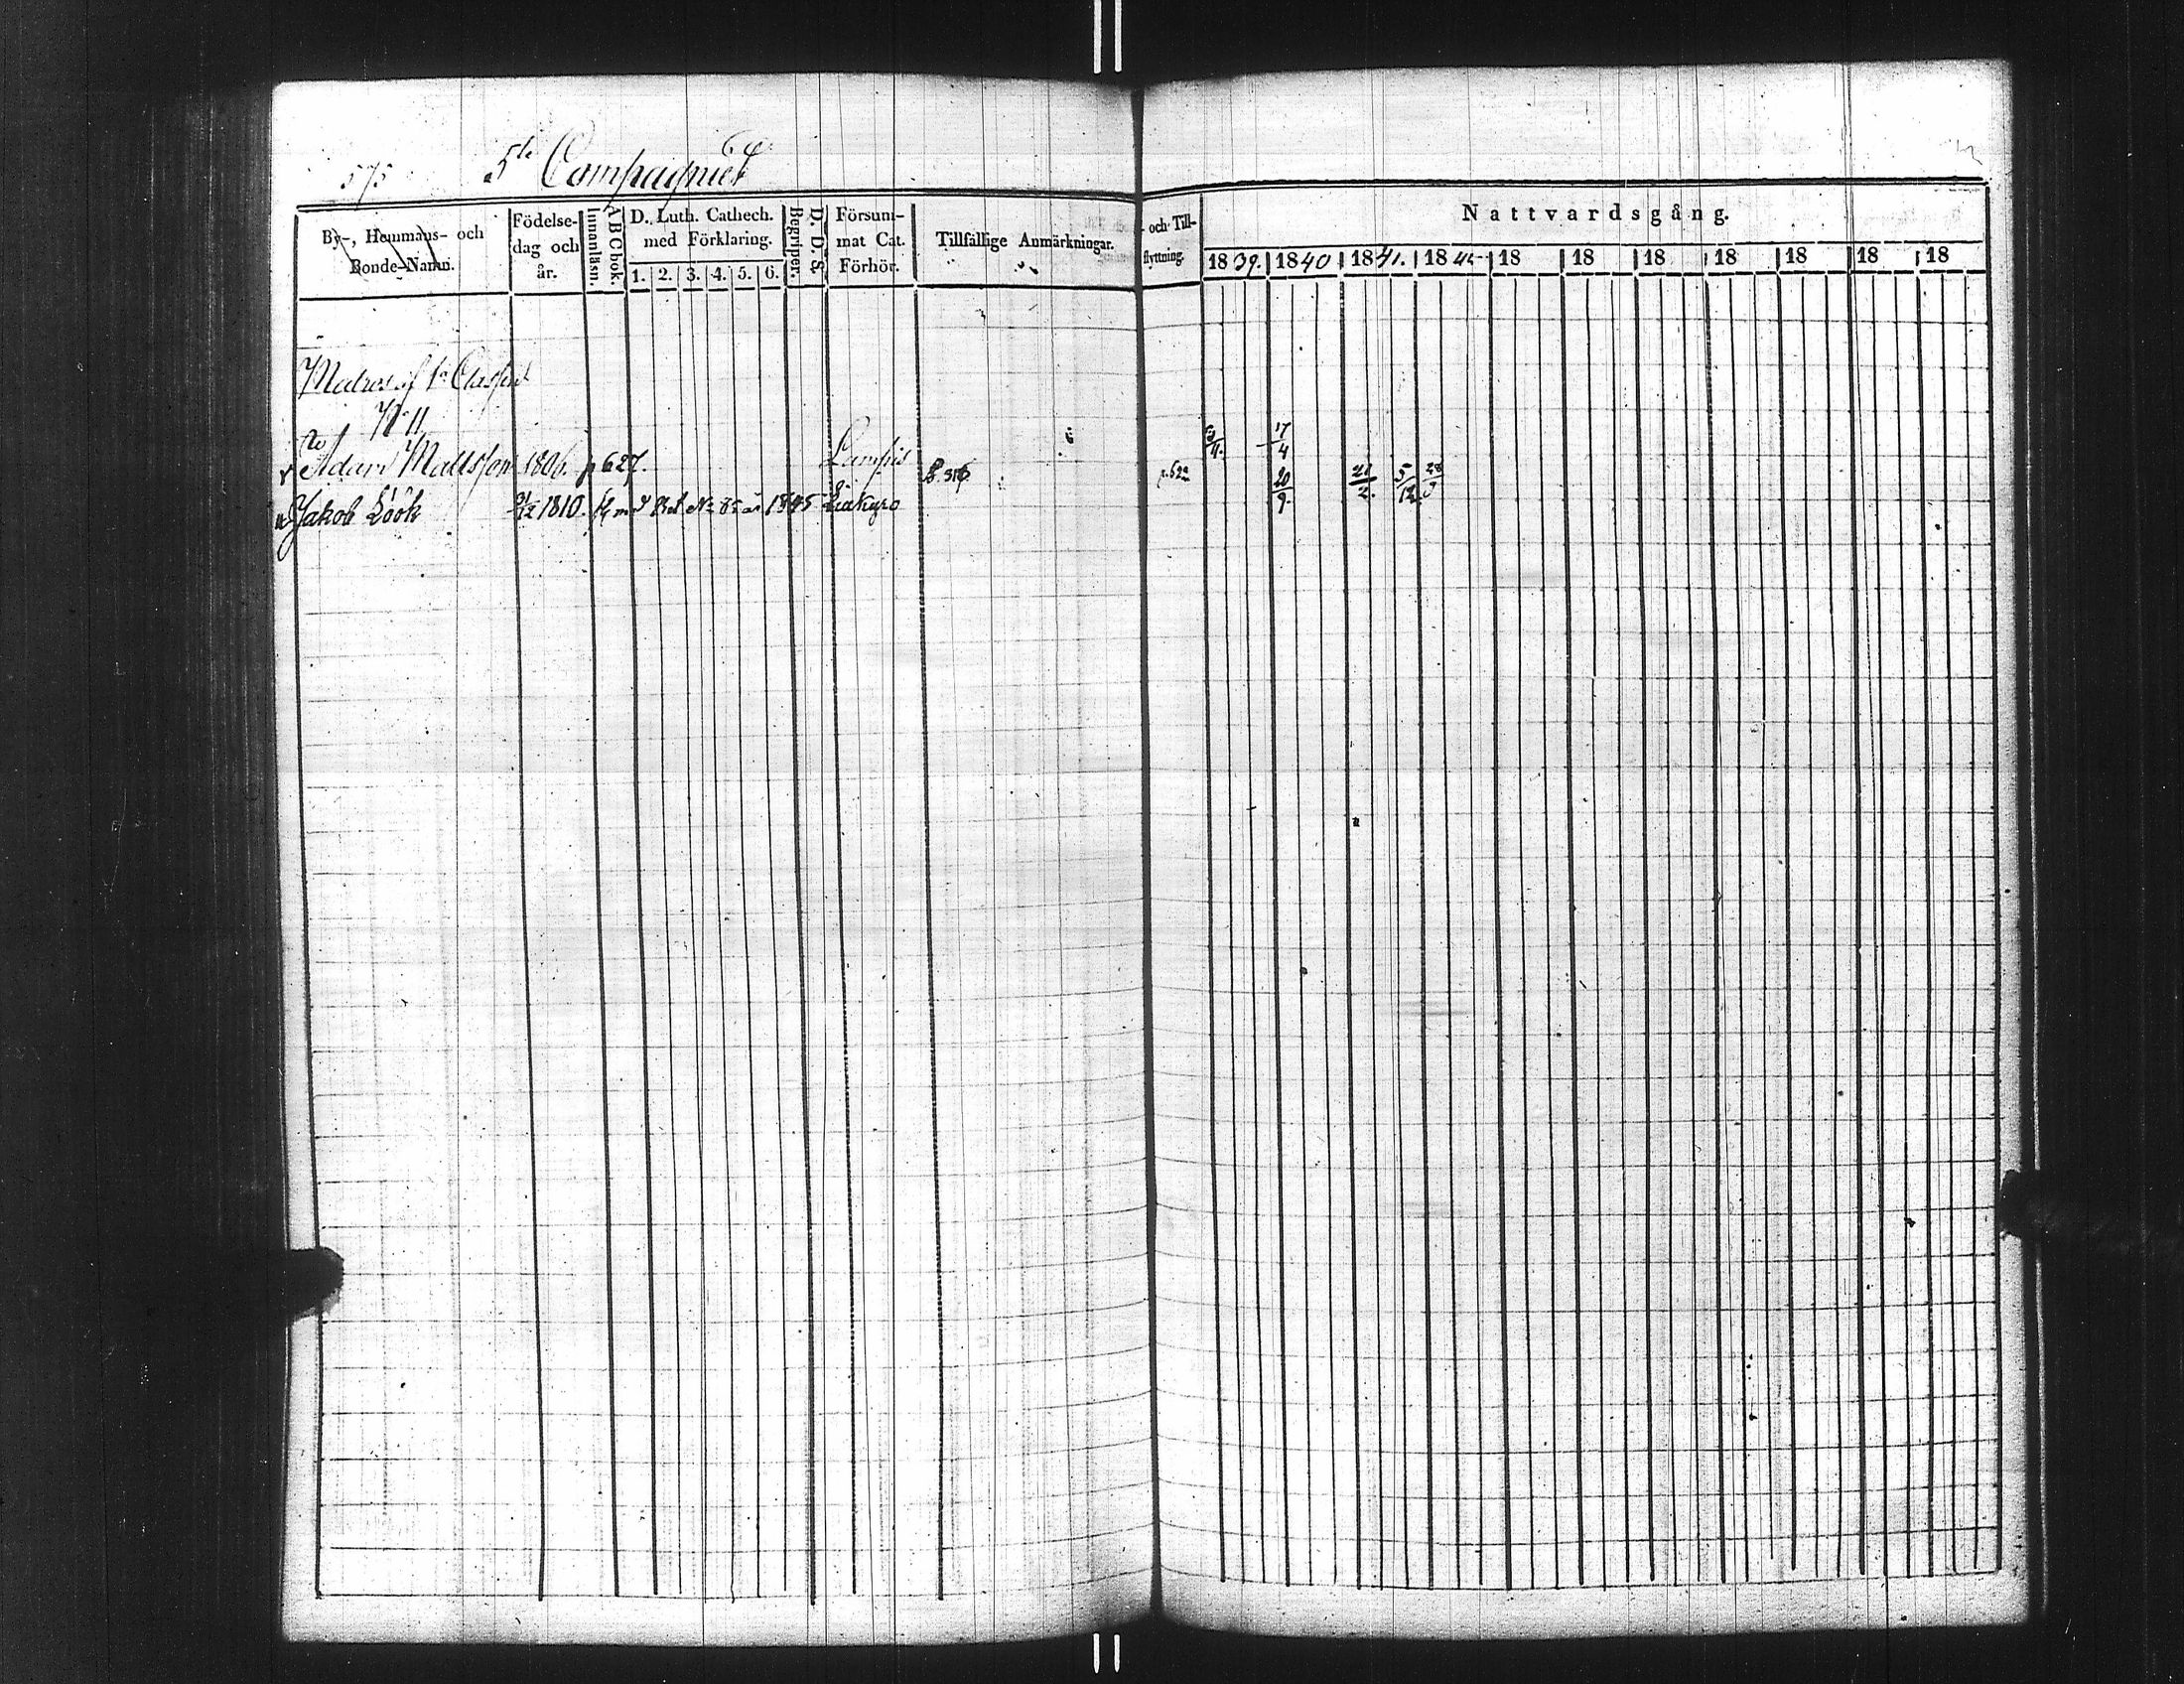 575 5te Compagniet
By-, Hemmans- och Bonde-Namn.
Födelse-dag och år.
A B C bok. Innanläsn.
D. Luth. Cathech. med Förklaring.
1. 2. 3. 4. 5. 6.
D. D. S. Begriper.
Försummat Cat. Förhör.
Tillfällige Anmärkningar.
- och Till-flyttning.
Nattvardsgång.
1839. 1840 1841. 18 18 18 18 18 18 18 18
Matros af 1a Classen
No 11
Adam Mattsson 1806. p 627. Lampis
17/4
Jakob Löök 31/12 1810. 1845 Liakyro
20/9. 21/2. 5/12